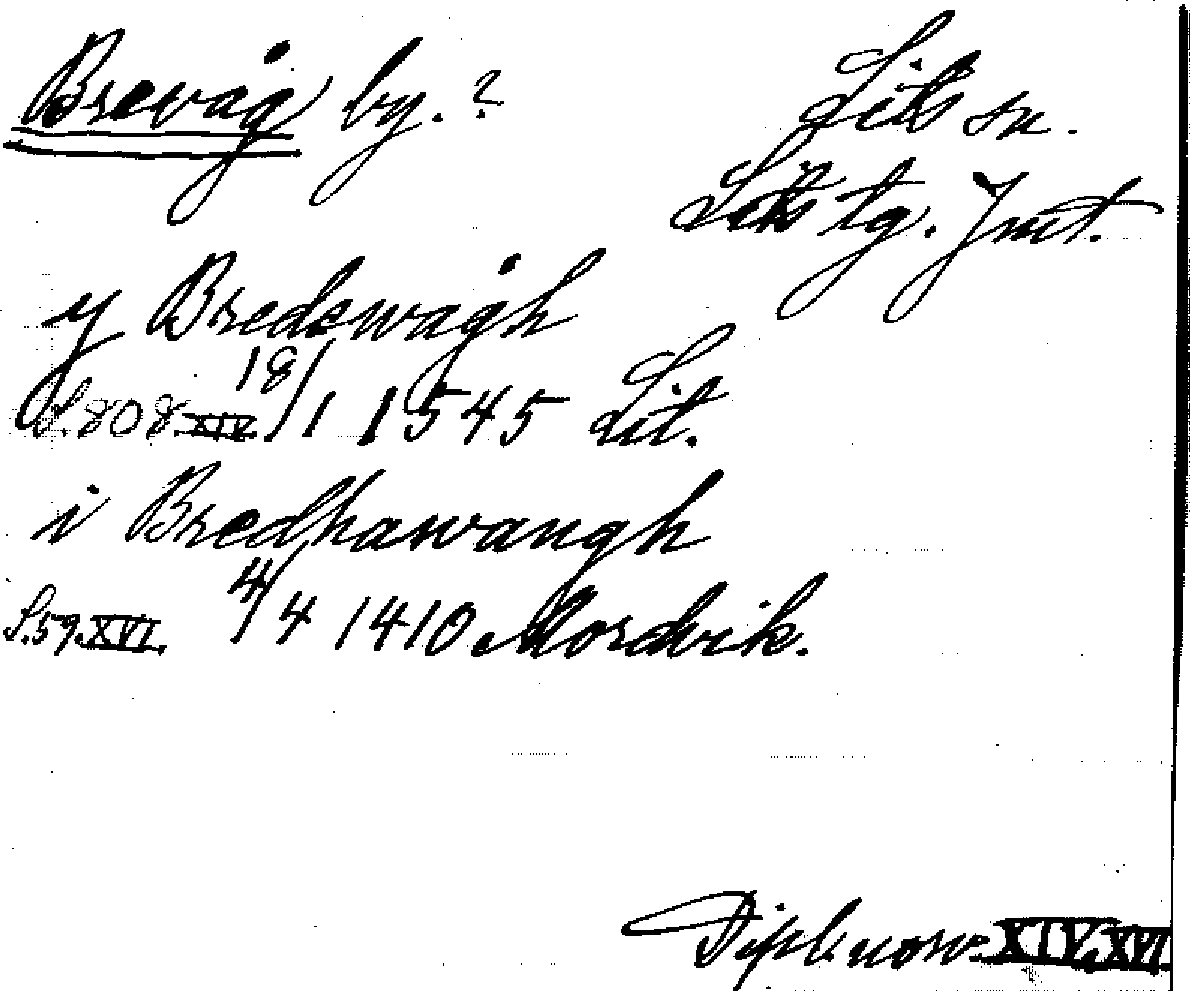 Brevåg by.? Lits sn.
Lits tg. Jmt.
y Bredewågh
S. 808. XIV. 18/1 1545 Lit.
i Bredhawangh
S. 59. XVI. 4/4 1410 Mordvik.
Dipl. norv. XIV, XVI